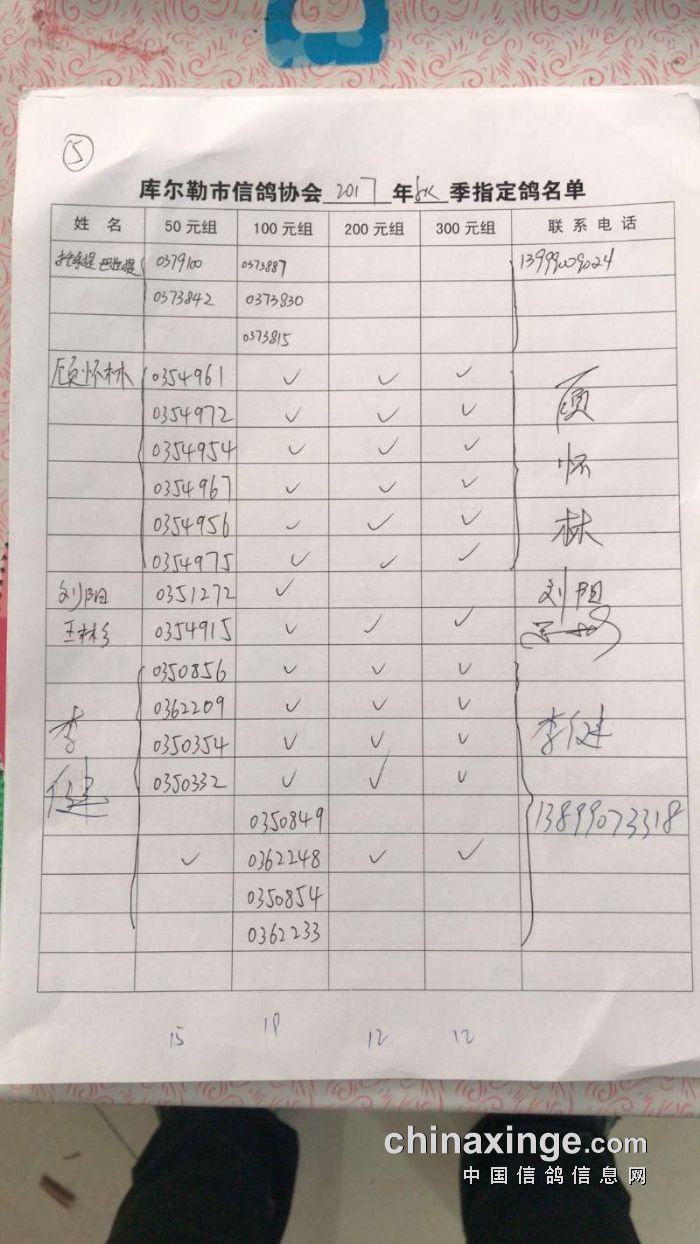 ⑤
库尔勒市信鸽协会 2017 年 秋 季指定鸽名单
姓 名 50元组 100元组 200元组 300元组 联系电话
0379100 0373887 13999009024
0373842 0373830
0373815
顾怀林 0354961 ✓ ✓ ✓ 顾怀林
0354972 ✓ ✓ ✓
0354954 ✓ ✓ ✓
0354967 ✓ ✓ ✓
0354956 ✓ ✓ ✓
0354975 ✓ ✓ ✓
刘阳 0351272 ✓ 刘阳
王林 0354915 ✓ ✓ ✓
李健 0350856 ✓ ✓ ✓ 李健
0362209 ✓ ✓ ✓
0350354 ✓ ✓ ✓
0350332 ✓ ✓ ✓
0350849 13899073318
✓ 0362248 ✓ ✓
0350854
0362233
15 18 12 12
chinaxinge.com
中国信鸽信息网